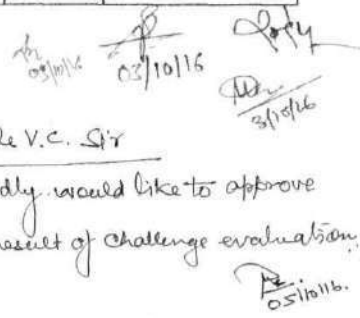 03/10/16 03/10/16
3/10/16
le V.C. Sir
dly would like to approve
result of challenge evaluation.
05/10/16.